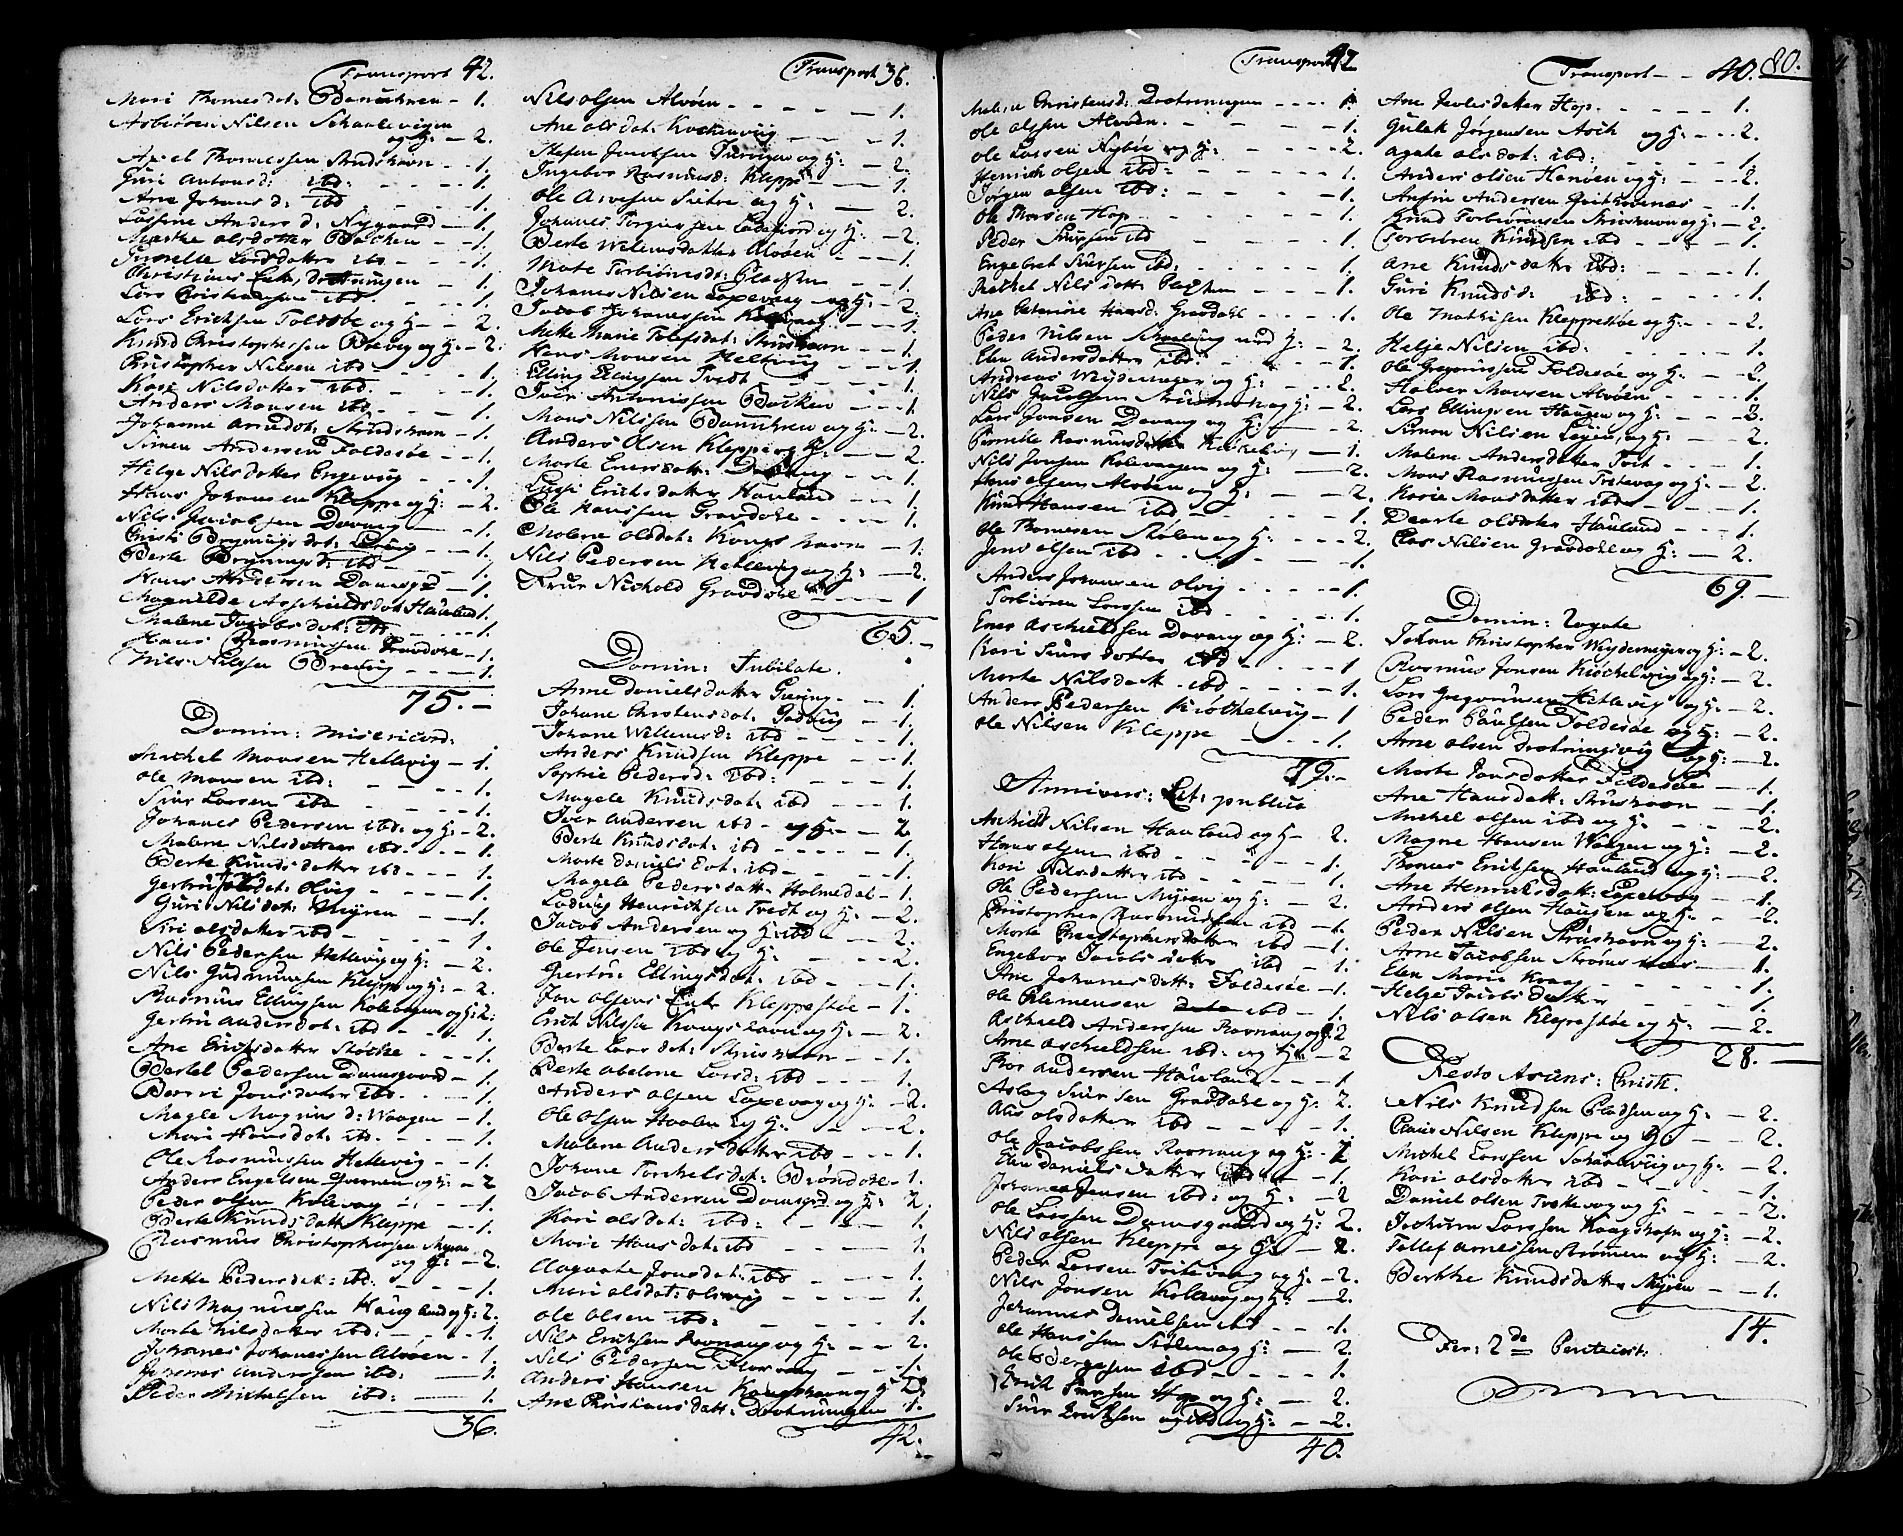 Transport 42.
Mari Thomesdat: - 1.
Asbiören Nilsen Schaalevigen
og H: - 2.
Axel Thomessen Strudshavn - 1.
Guri Antonsd: ibd: - 1.
Ane Johansd: ibd - 1.
Anders d: Nygaard - 1.
Marthe olsdotter Backen - 1.
Pernelle Larsdatter ibd - 1.
Christians Enke, drotningen - 1.
Lars Christiansen ibd - 1.
Lars Erichsen Foldsöe og H - 2.
Knud Christophersen Brevig og H: - 2.
Christopher Nilsen ibd - 1.
Kari Nilsdatter ibd. - 1.
Anders Monsen ibd - 1.
Johanne Arnedat: Strudshavn - 1.
Simen Andersen Foldesöe - 1.
Helge Nilsdatter Engevig - 1.
Hans Johansen Kleppe og H: - 2.
Nils Jacobsen Davang - 1.
Christi Brynnigsdat: - 1.
Berte Brynnigsd: ibd - 1.
Hans Andersen Damsgd - 1.
Magnilde Aschieldsdat Hauland 1.
Malene Jacobsdat: ibd - 1.
Hans Rasmussen Gravdahl - 1.
Nils Nilsen Brevig - 1.
75. -
Domin: Misericord:
Michel Monsen Hetlevig - 1.
Ole Monsen ibd: - 1.
Siur Larsen ibd - 1.
Johanes Pedersen ibd: og H - 2.
Malene Nilsdatter ibd. - 1.
Berte Knudsdatter ibd - 1.
Gertru olsdat: Olvig - 1.
Guri Nilsdat: Myren - 1.
Siri olsdatter ibd - 1.
Nils Pedersen Hetlevig og H: - 2.
Nils Gudmundsen Kleppe og H: - 2.
Rasmus Ellingsen Kolevagen og H: 2.
Gertru Andersdat: ibd - 1.
Ane Erichsdatter Stöche - 1.
Bertel Pedersen Damsgaard - 1.
Berri Jonsdatter ibd. - 1.
Magle Magnus d: Waagen - 1.
Mari Hansdat: ibd. - 1.
Ole Rasmussen Hetlevig - 1.
Anders Engelsen og H: - 2
Peder olsen Kolevag - 1.
Berte Knudsdatt Kleppe - 1.
Rasmus Christophersen Myren
og H: - 2.
Mette Pedersdat: ibd: - 1.
Nils Magnussen Haugland og H: 2.
Marte Nilsdatter ibd: - 1.
Johanes Johanessen Alvöen - 1.
Johannes Anderssen ibd: - 1.
Peder Michelsen ibd: - 1.
36.
Transport 36.
Nils olsen Alvöen - 1.
Ane olsdat: Kochenvig - 1.
Stefen Jacobsen og H: - 2.
Ingebor Rasmusd: Kleppe - 1.
Ole Arvesen og H: - 2.
Johanes Torgiussen og H: - 2.
Berte Willumsdatter Alvöen - 1.
Mate Torbiörnsd: - 1.
Johanes Nilsen Lopevaag og H: - 2.
Jacob Johanessen - 1.
Mette Marie Tolefsdat: Strushavn - 1.
Hans Monsen Heltvig - 1.
Elling Ellingsen Tvedt - 1.
Iver Antonissen Backen - 1.
Mons Nilssen og H: - 2.
Anders Olsen Kleppe og H: - 2.
Marte Enersdatt: Davang - 1.
Erichsdatter Hauland - 1.
Ole Hanssen Gravdahl - 1.
Malene olsdat: Kongshavn - 1.
Nils Pedersen Hetlevig og H: - 2.
Frur Nichold Gravdahl - 1
65. -
Domin: Jubilate.
Anne Danielsdatter - 1
Johane Christensdat: - 1.
Johane Willumsd: ibd - 1.
Anders Knudsen Kleppe - 1.
Sophie Pedersd: ibd: - 1.
Magele Knudsdat: ibd - 1.
Iver Andersen ibd - 2
Berte Knudsdat: ibd - 1.
Marte Daniels dat: ibd. - 1.
Magele Pedersdatt: Holmedal - 1.
Ludvig Henrichsen Tvedt og H: - 2.
Jacob Andersen og H: ibd - 2.
Ole Jensen ibd og H: - 2.
Giertru: Ellingsdat: ibd - 1.
Jon olsens Enke Kleppestöe - 1.
Erich Nilssen Kongshavn og H: - 2.
Berte Larsdat: Strusnavn - 1.
Berte abelone Larsd: ibd - 1.
Anders olsen Lopevag og H: - 2.
Ole Olsen Haalen og H: - 2.
Malene Andersdatter ibd - 1.
Johane Torchelsdat: Bröndahl - 1.
Jacob Andersen Damsgrd og H: 2.
Kari olsdat: ibd: - 1.
Mari Hansdat: ibd - 1.
Aagaate Jonsdat: ibd - 1.
Mari olsdat: olsvig - 1.
Ole olsen ibd: - 1.
Nils Erichsen Ravnang og H: - 2.
Nils Pedersen - 1.
Anders Hansen Kongshavn og H 2.
Ane Christiansdatt: Drotningen 1.
42. -
Transport 42
Malen Christensd: Drotningen - 1.
Ole olssen Alvöen. - 1.
Ole Larssen Nyböe og H: - 2.
Henrich olsen ibd: - 1.
Jörgen olsen ibd: - 1.
Ole Thorsen Hop - 1.
Peder Siursen ibd - 1.
Engebret Siursen ibd: - 1.
Rachel Nilsdatt - 1.
Ane Caterine Hansd: Gravdahl - 1.
Peder Nilsen med H: - 2.
Elen Andersdatter ibd: - 1.
Andreas Weydemeyer og H: - 2.
Nils Jacobsen Strudshavn og H: - 2.
Lars Jonsen Davang og H: - 2.
Pernille Rasmusdatter - 1.
Nils Jonsen Kolevaagen og H: - 2.
Hans olsen Alvöen og H: - 2.
Knud Hansen ibd - 1.
Ole Thomesen Stölen og H: - 2.
Jens olsen ibd - 1.
Anders Johansen Olvig - 1.
Torbiören Larssen ibd - 1.
Ener Aschieldsen Davang og H: - 2.
Kari Siursdatter ibd - 1
Marte Nilsdatt. ibd - 1.
Anders Pedersen Kröchelvig - 1
Ole Nilsen Kleppe - 1.
39. -
Annivers: Lit: publica
Aschield Nilsen Hauland og H - 2.
Hans olsen ibd - 1.
Kari Nilsdatter ibd - 1.
Ole Pedersen Myren og H: - 2.
Christopher Rasmussen ibd - 1.
Marte Christophersdatter ibd - 1.
Engebor Jacobsdatter ibd - 1.
Ane Johanesdatt: Foldesöe - 1.
Ole Clemensen ibd - 1.
Aschield Andersen Ravnang og H: 2
Arne Aschieldsen ibd: og H: - 2
Thor Andersen Hauland - 1
Aslag Siursen Gravdahl og H: 2.
Alis olsdatter ibd - 1.
Ole Jacobssen Ravnang og H: - 2
Elen Danielsdatter ibd - 1.
Johanes Jensen ibd: og H: - 2
Ole Larssen Damsgaard og H: 2.
Nils olsen Kleppe og H: - 2.
Peder Larsen Tvitevang og H: - 2.
Nils Jonsen Kolevog og H: - 2.
Johannes Danielsen ibd - 1.
Ole Hanssen Stölen og H: - 2.
Ole Bergesen ibd - 1.
Erich Siursen Hop og H: - 2.
Siur Erichsen ibd og H: - 2.
40.
80.
Transport - 40.
Ane Joelsdatter Hop - 1.
Gulak Jörgensen Ask og H: - 2.
Agate olsdat: ibd: - 1.
Anders olsen Hanöen og H: - 2.
Anfin Andersen Geitanes - 1.
Knud Torbiörensen Strushavn og H: - 2.
Torbiören Knudsen ibd - 1.
Ane Knudsdatter ibd: - 1.
Guri Knudsd: ibd: - 1.
Ole Mathisen Kleppestöe og H: - 2.
Helje Nilsen ibd: - 1.
Ole Gregoriussen Foldesöe og H: - 2.
Halvor Monsen Alvöen - 1.
Lars Ellingsen Haugen og H: - 2.
Simon Nilsen og H: - 2.
Malene Andersdatter Tvit - 1.
Mons Rasmussen Tvetevag og H: - 2.
Karie Monsdatter ibd - 1.
Dorte olsdatter Hauland - 1.
Nilsen Gravdahl og H: - 2.
69. -
Domin: Rogate
Johan Christopher Weydemeyer og H: - 2.
Rasmus Jonsen Kröchelvig og H: - 2.
Lars Gregoriussen Hetlevig og H: - 2.
Peder Paulsen Foldesöe og H: - 2.
Arne olsen drotningsvig og H: - 2.
Marte Jonsdatter Foldesöe - 1.
Ane Hansdatt: Strushavn - 1.
Michel olsen ibd og H: - 2.
Magne Hansen Waagen og H: - 2.
Thomas Erichsen Hauland og H: - 2.
Ane Henrichsdatt: Lopevog - 1.
Anders olsen Hausen og H: - 2.
Peder Nilsen Strushavn og H: - 2.
Arne Jacobsen Ströms - 1.
Elen Marie Kaag - 1.
Helge Jacobsdatter - 1.
Nils olsen Klepestöe og H: - 2.
28. -
Festo Ascens: Christi.
Nils Knudsen og H: - 2.
Nilsen Kleppe og H: - 2.
Michel Larssen Schaalevig og H: - 2.
Kari olsdatter ibd - 1.
Daniel olsen Tvetevag og H: - 2.
Jochum Larssen og H: - 2.
Tollef Arnessen Strömmen og H: - 2.
Berthe Knudsdatter Myren - 1.
14.
Fer: 2de Pentecost: